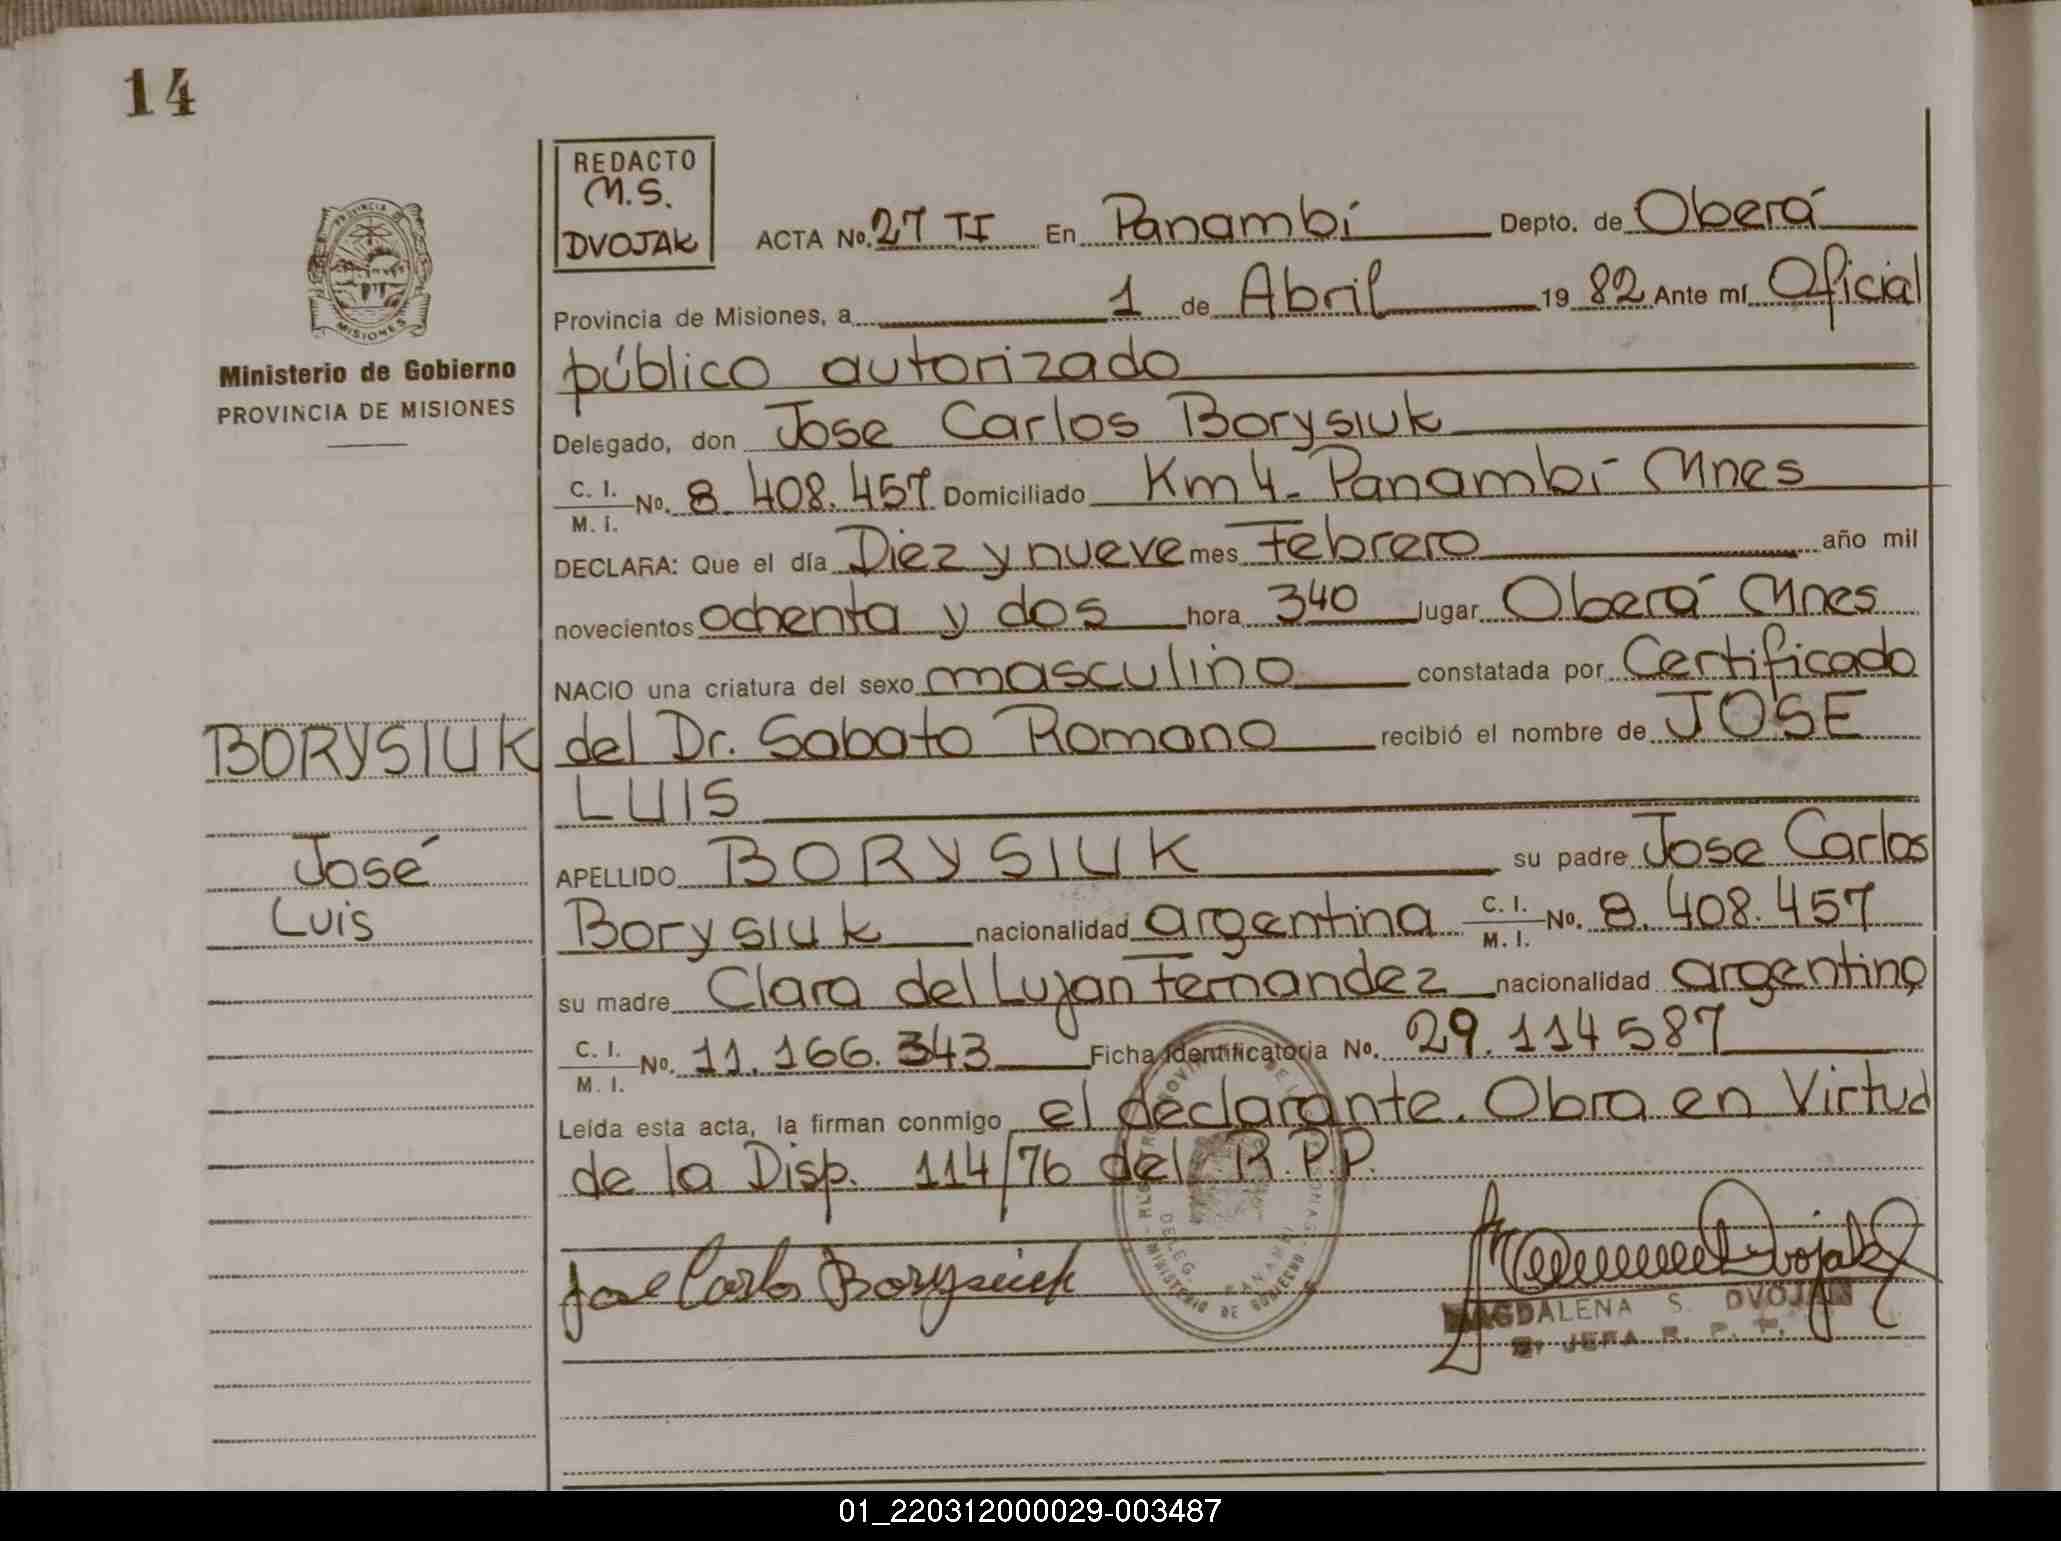 14
REDACTO
M.S.
DVOJAK
ACTA No. 27 TI En Panambí Depto. de Oberá
Provincia de Misiones, a 1 de Abril 19 82 Ante mí Oficial
público autorizado
Delegado, don Jose Carlos Borysiuk
C. I.
M. I. No. 8.408.457 Domiciliado Km 4- Panambí Mnes
DECLARA: Que el día Diez y nueve mes Febrero año mil
novecientos ochenta y dos hora 340 lugar Oberá Mnes
NACIO una criatura del sexo masculino constatada por Certificado
del Dr. Sabato Romano recibió el nombre de JOSE
LUIS
APELLIDO BORYSIUK su padre Jose Carlos
Borysiuk nacionalidad argentina C. I.
M. I. No. 8.408.457
su madre Clara del Lujan Fernandez nacionalidad argentina
C. I.
M. I. No. 11.166.343 Ficha Identificatoria No. 29.114587
Leída esta acta, la firman conmigo el declarante. Obra en Virtud
de la Disp. 114/76 del R.P.P.
Jose Carlos Borysiuk
Dvojak
MAGDALENA S. DVOJAK
JEFA R. P. P.
PROVINCIA DE
MISIONES
Ministerio de Gobierno
PROVINCIA DE MISIONES
BORYSIUK
José
Luis
DELEG. PANAMBI
MINISTERIO DE GOBIERNO
01_220312000029-003487